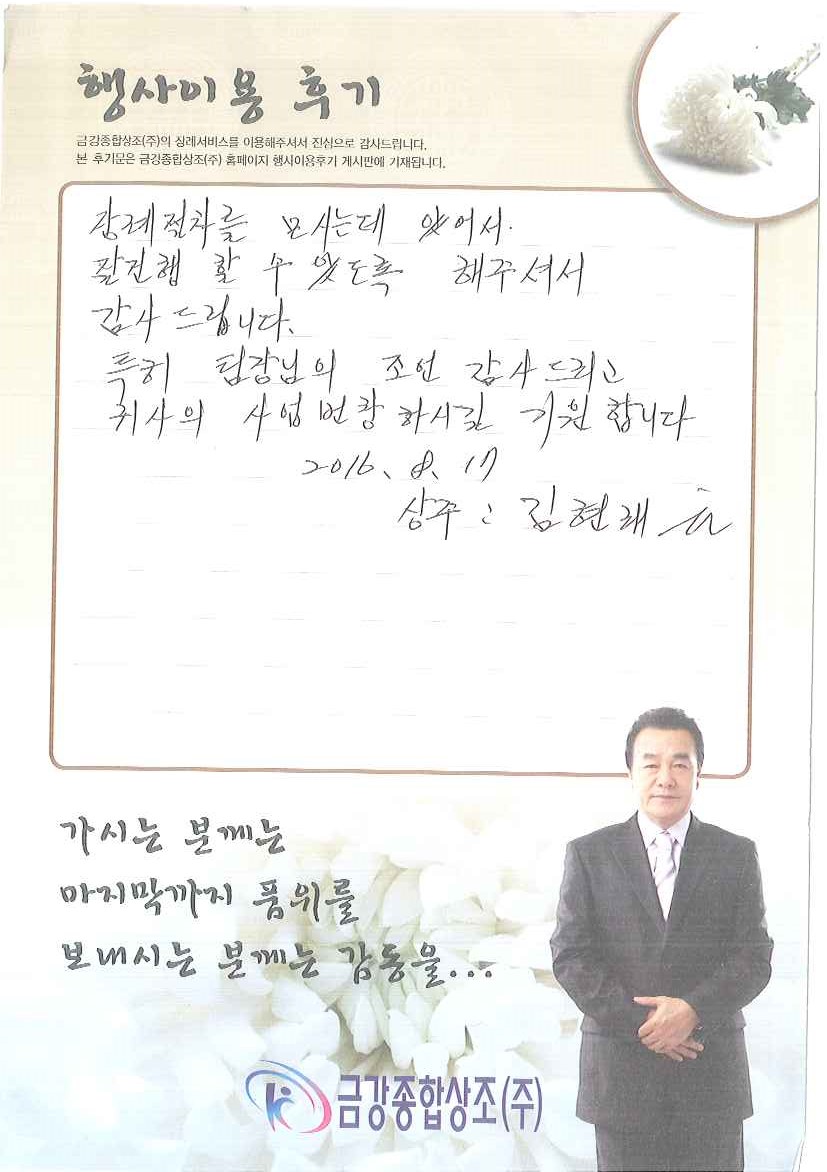 행사이용 후기
금강종합상조(주)의 장례서비스를 이용해주셔서 진심으로 감사드립니다.
본 후기문은 금강종합상조(주) 홈페이지 행사이용후기 게시판에 기재됩니다.
장례절차를 모시는데 있어서.
잘진행 할 수 있도록 해주셔서
감사드립니다.
특히 팀장님의 조언 감사드리고
귀사의 사업번창하시길 기원합니다
2016. 8. 17
상주 : 김현래
가시는 분께는
마지막까지 품위를
보내시는 분께는 감동을...
금강종합상조(주)